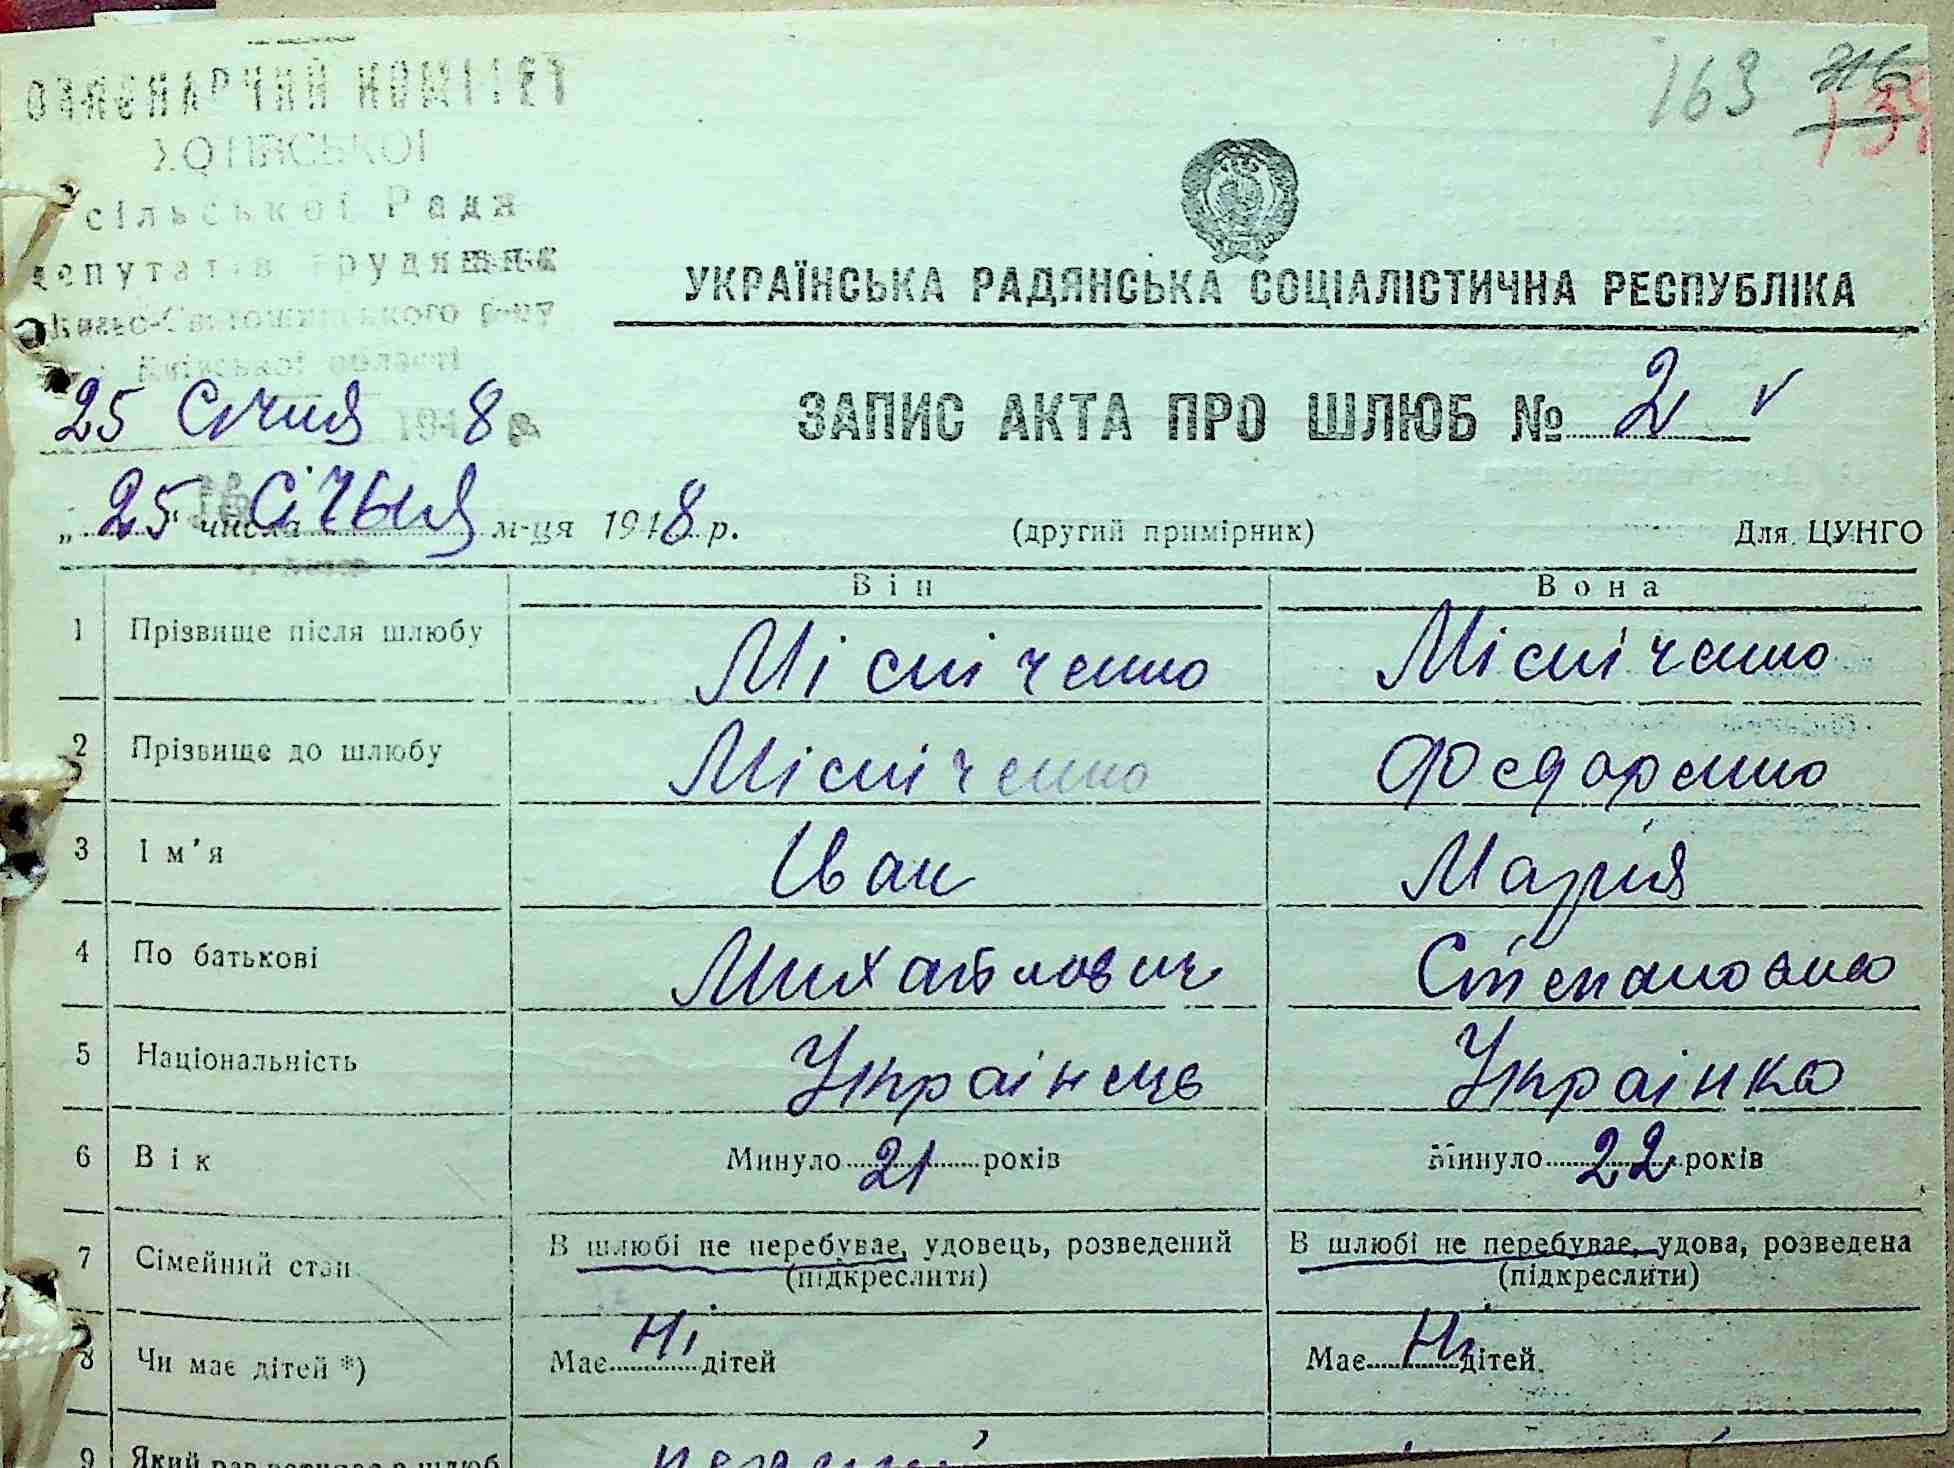 163
КОМІТЕТ
сільської Ради
депутатів трудящих
Києво-Святошинського р-ну
Київської області
25 Січня 1948
УКРАЇНСЬКА РАДЯНСЬКА СОЦІАЛІСТИЧНА РЕСПУБЛІКА
ЗАПИС АКТА ПРО ШЛЮБ № 2
„25" числа Січня м-ця 1948 р. (другий примірник) Для ЦУНГО
Він Вона
1 Прізвище після шлюбу Місніченко Місніченко
2 Прізвище до шлюбу Місніченко Федоренко
3 Ім'я Іван Марія
4 По батькові Михайлович Степановна
5 Національність Українець Українка
6 Вік Минуло 21 років Минуло 22 років
7 Сімейний стан В шлюбі не перебуває, удовець, розведений В шлюбі не перебуває, удова, розведена
(підкреслити) (підкреслити)
8 Чи має дітей *) Має Ні дітей Має Ні дітей
9 Який раз вступає в шлюб